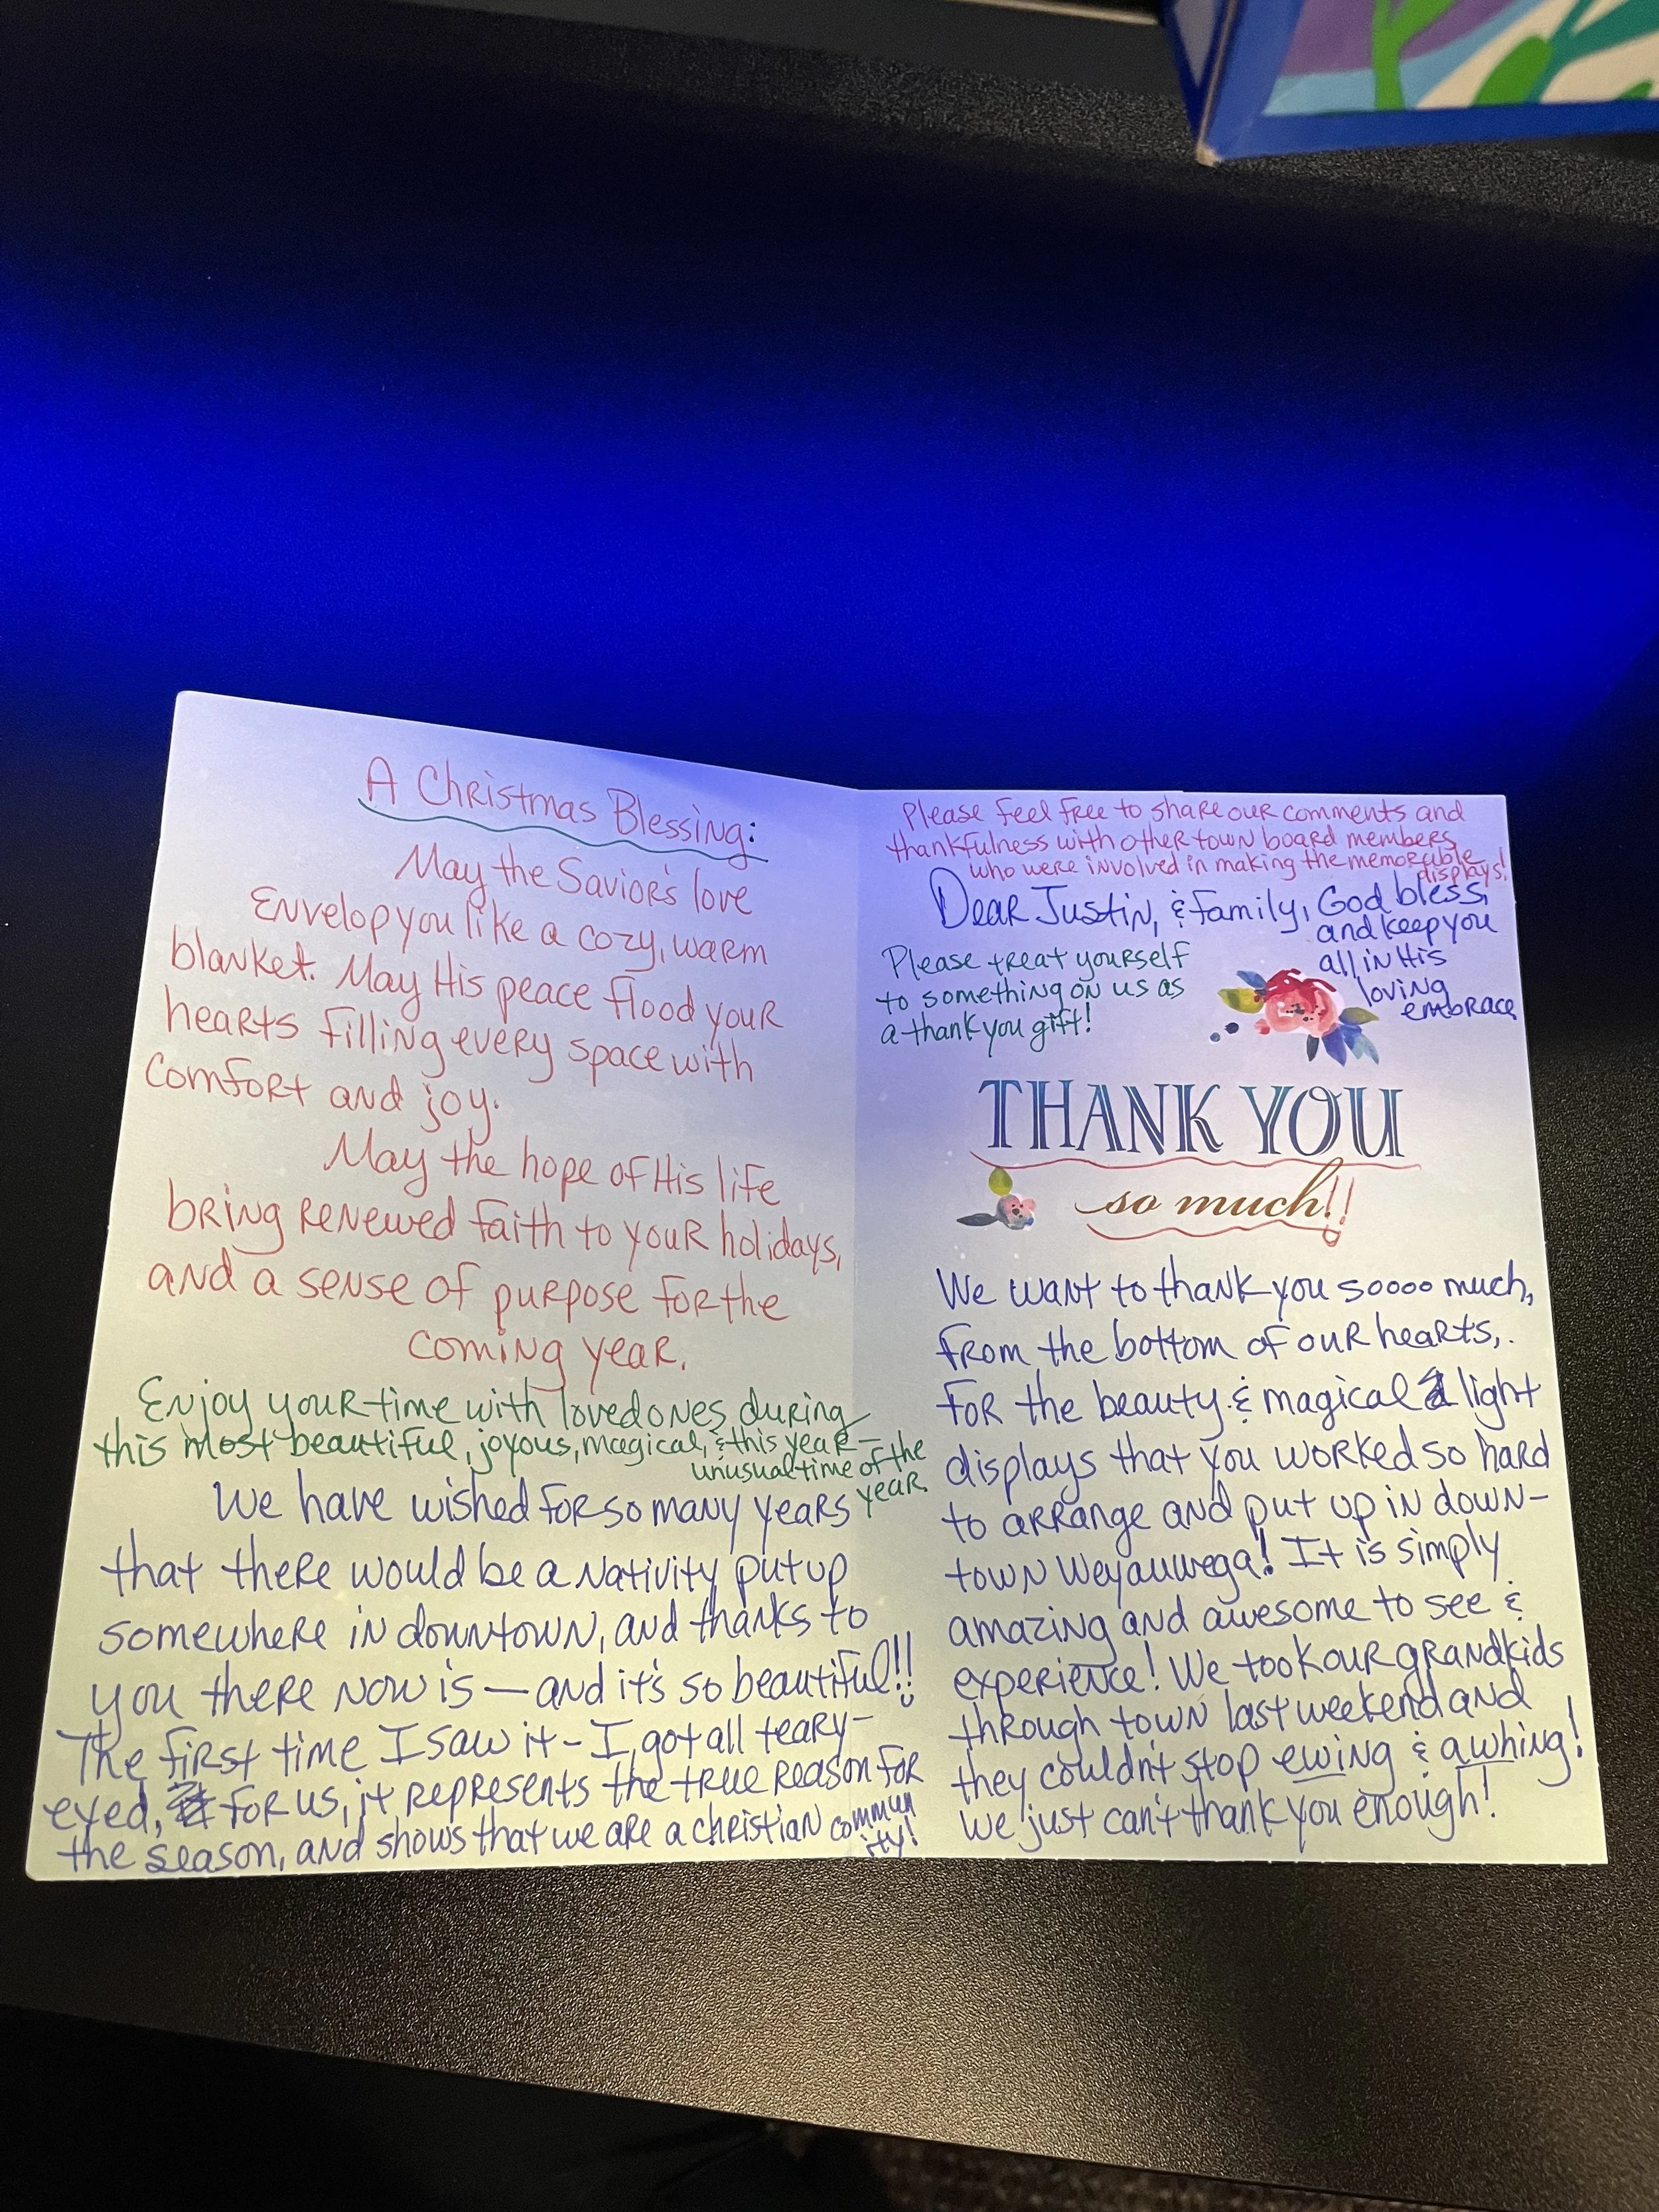 A Christmas Blessing:
May the Savior's love
Envelop you like a cozy, warm
blanket. May His peace flood your
hearts filling every space with
comfort and joy.
May the hope of His life
bring renewed faith to your holidays,
and a sense of purpose for the
coming year.
Enjoy your time with loved ones during
this most beautiful, joyous, magical, & this year-
unusual time of the
year.
We have wished for so many years
that there would be a Nativity put up
somewhere in downtown, and thanks to
you there now is — and it's so beautiful!!
The first time I saw it - I got all teary-
eyed, for us, it represents the true reason for
the season, and shows that we are a christian commun
ity!
Please feel free to share our comments and
thankfulness with other town board members
who were involved in making the memorable
displays!
Dear Justin, & family, God bless,
and keep you
all in His
loving
embrace
Please treat yourself
to something on us as
a thank you gift!
THANK YOU
so much!!
We want to thank you soooo much,
from the bottom of our hearts,
for the beauty & magical light
displays that you worked so hard
to arrange and put up in down-
town Weyauwega! It is simply
amazing and awesome to see &
experience! We took our grandkids
through town last weekend and
they couldn't stop ewing & awhing!
We just can't thank you enough!